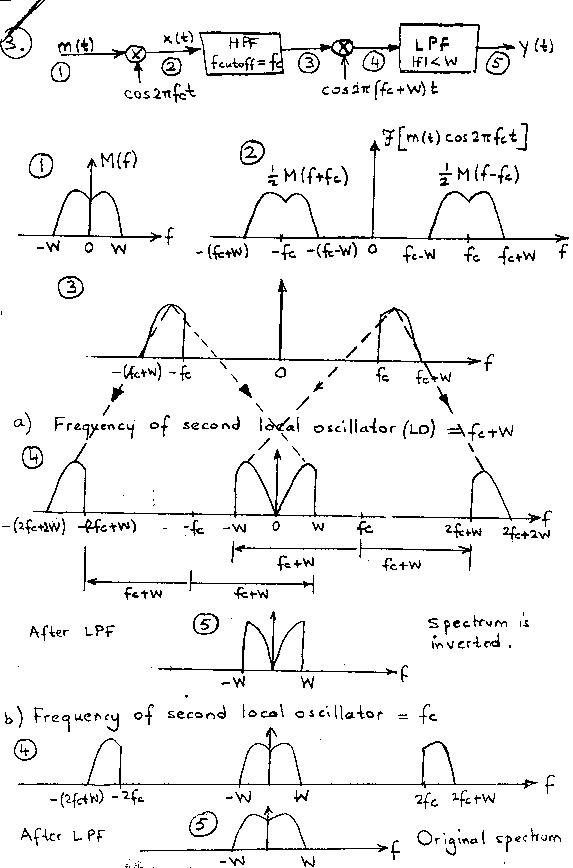 3. m(t) x(t) HPF fcutoff = fc LPF |f| < W y(t)
① × ② ③ × ④ ⑤
cos2πfct cos2π(fc+W)t
① M(f) ② ℱ[m(t) cos 2πfct]
½ M(f+fc) ½ M(f-fc)
-W 0 W f -(fc+W) -fc -(fc-W) 0 fc-W fc fc+W f
③
-(fc+W) -fc 0 fc fc+W f
a) Frequency of second local oscillator (LO) = fc+W
④
-(2fc+2W) -(2fc+W) -fc -W 0 W fc 2fc+W 2fc+2W f
fc+W fc+W
fc+W fc+W
After LPF ⑤ Spectrum is
inverted.
-W W f
b) Frequency of second local oscillator = fc
④
-(2fc+W) -2fc -W W 2fc 2fc+W f
After LPF ⑤ f Original spectrum
-W W